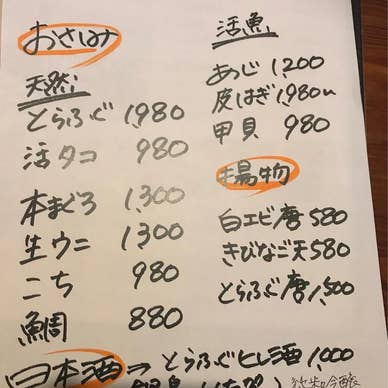 おさしみ
天然
とらふぐ 1,980
活タコ 980
本まぐろ 1,300
生ウニ 1,300
こち 980
鯛 880
活魚
あじ 1,200
皮はぎ 1,980〜
甲貝 980
揚物
白エビ唐 580
きびなご天 580
とらふぐ唐 1,500
日本酒⇒とらふぐヒレ酒 1,000